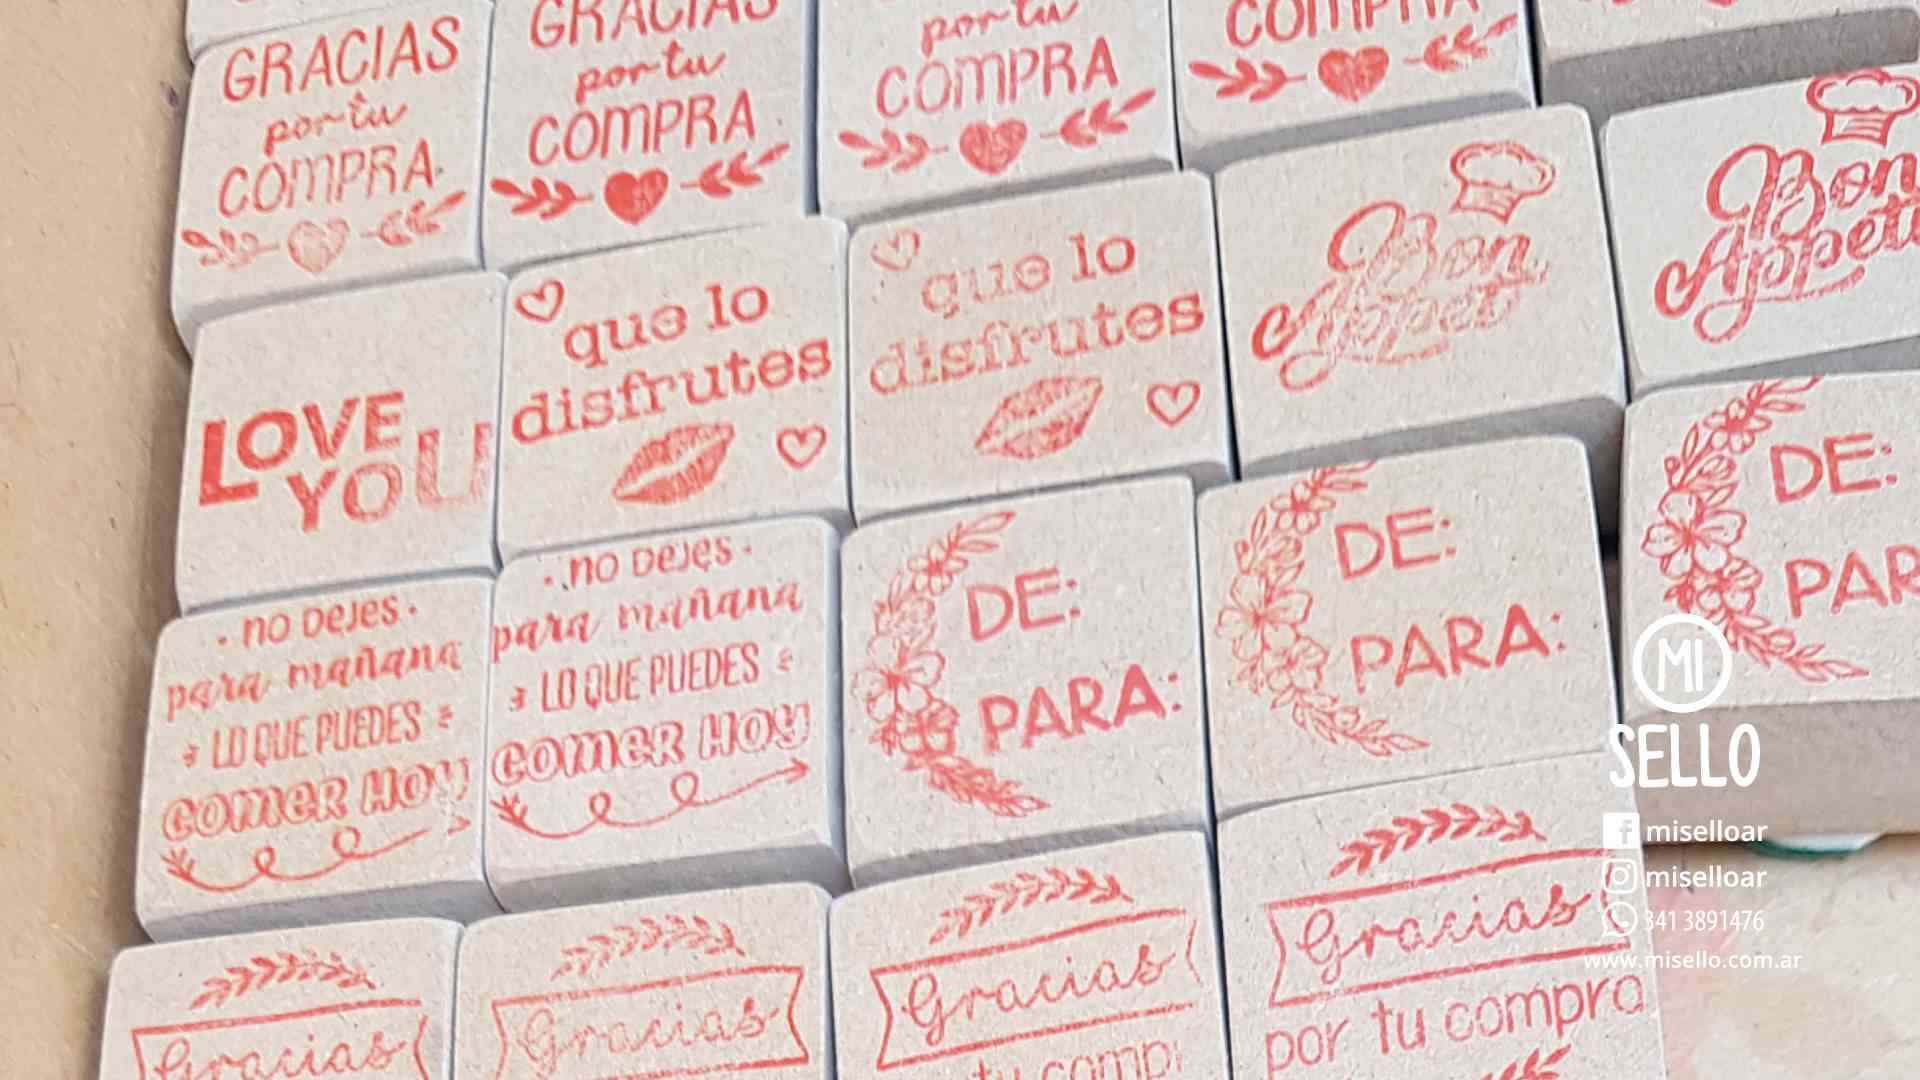 GRACIAS
por tu
COMPRA
GRACIAS
por tu
COMPRA
por tu
COMPRA
COMPRA
Bon
Appetit
Bon
LOVE
YOU
que lo
disfrutes
que lo
disfrutes
DE:
PARA:
DE:
PARA:
DE:
· NO DEJES ·
para mañana
LO QUE PUEDES
COMER HOY
· NO DEJES ·
para mañana
LO QUE PUEDES
COMER HOY
Gracias
Gracias
Gracias
tu
Gracias
por tu compra
MI
SELLO
miselloar
miselloar
341 3891476
www.misello.com.ar